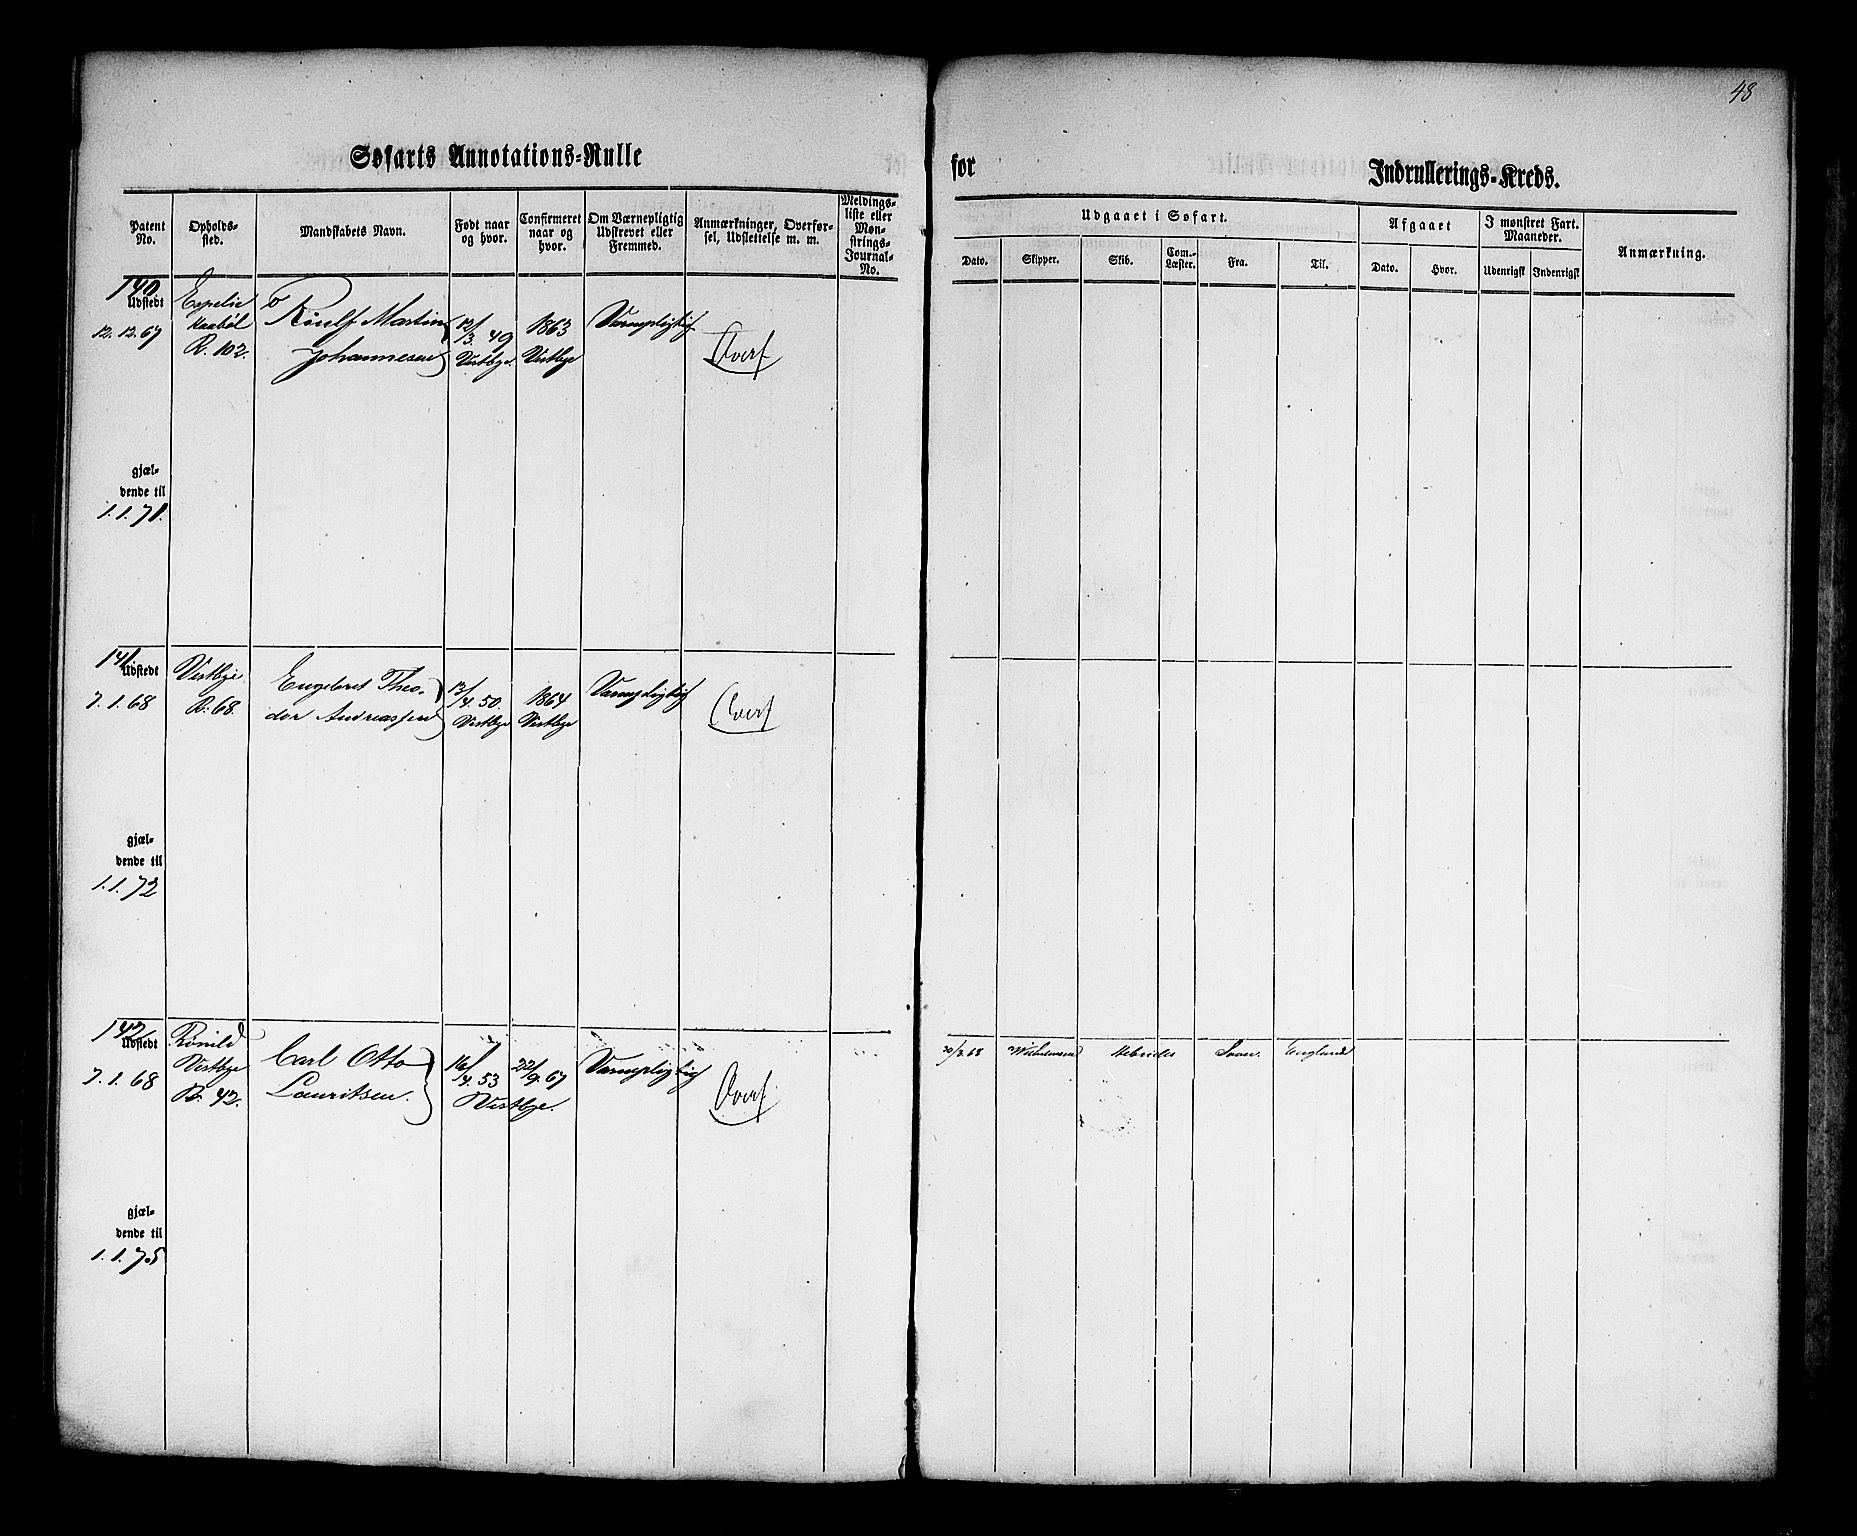 48
Søfarts Annotations-Rulle
for
Indrullerings-Kreds.
Patent No.
Opholds-sted.
Mandskabets Navn.
Født naar og hvor.
Confirmeret naar og hvor.
Om Værnepligtig Udskrevet eller Fremmed.
Anmærkninger, Overførsel, Udslettelse m. m.
Meldingsliste eller Mønstrings-Journal-No.
Udgaaet i Søfart.
Afgaaet
I mønstret Fart. Maaneder.
Anmærkning.
Dato.
Skipper.
Skib.
Com.-Læster.
Fra.
Til.
Dato.
Hvor.
Udenrigsk
Indenrigsk
140
Udstedt
12.12.67
Espelie
R. 102.
Martin
Johannesen
12/3. 49
Vestbye.
1863
Vestbye
Værnepligtig
Overf
gjæl-
dende til
1.1.71.
141.
Udstedt
7.1.68
Vestbye
R. 68.
Engebret Theo-
dor Andreassen
13/4. 50.
Vestbye
1864
Vestbye
Værnepligtig
Overf
gjæl-
dende til
1.1.72
142
Udstedt
7.1.68
Vestbye
R. 42.
Carl Otto
Lauritsen.
16/4. 53
22/9. 67
Vestbye.
Værnepligtig
Overf
20/3.68
Wilhelmsen
Hebrides
Soon.
England
gjæl-
dende til
1.1.75